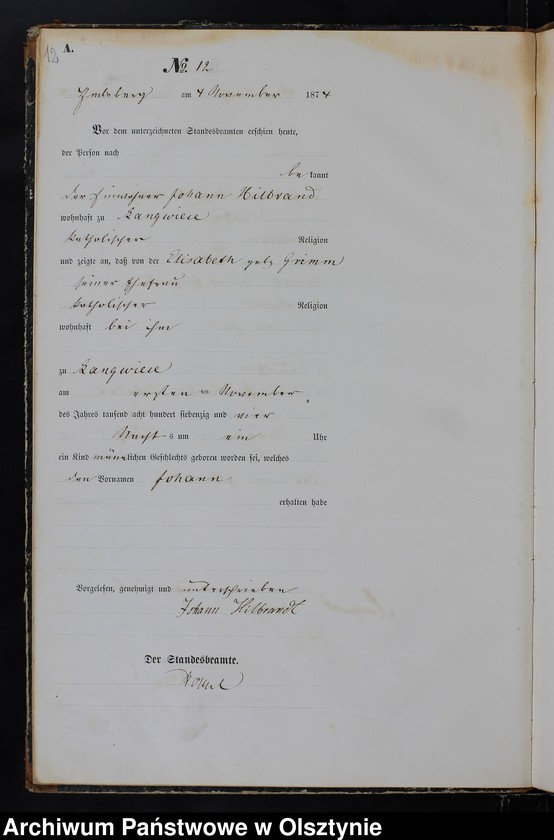 12
A.
No. 12
am 4 November 1874
Vor dem unterzeichneten Standesbeamten erschien heute,
der Person nach
be kannt
der Einwohner Johann Hilbrand
wohnhaft zu Langwiese
katholischer Religion
und zeigte an, daß von der Elisabeth geb. Grimm
seiner Ehefrau
katholischer Religion
wohnhaft bei ihm
zu Langwiese
am ersten November
des Jahres tausend acht hundert siebenzig und vier
Nachts um ein Uhr
ein Kind männlichen Geschlechts geboren worden sei, welches
den Vornamen Johann
erhalten habe
Vorgelesen, genehmigt und unterschrieben
Johann Hilbrandt
Der Standesbeamte.
Archiwum Państwowe w Olsztynie